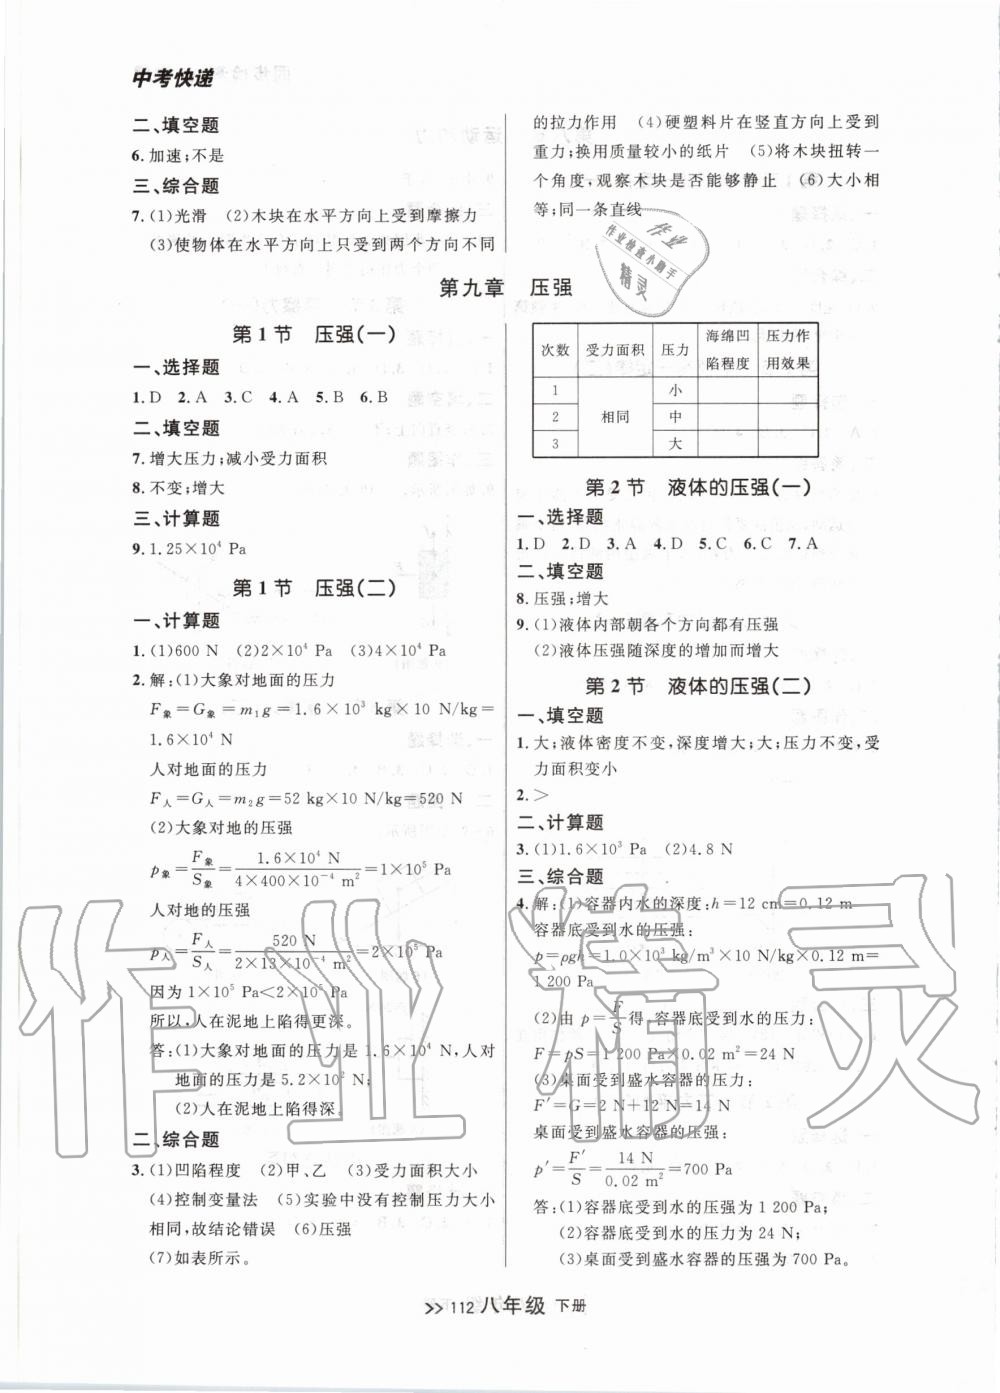 中考快递
二、填空题
6. 加速;不是
三、综合题
7. (1)光滑 (2)木块在水平方向上受到摩擦力
(3)使物体在水平方向上只受到两个方向不同
的拉力作用 (4)硬塑料片在竖直方向上受到
重力;换用质量较小的纸片 (5)将木块扭转一
个角度,观察木块是否能够静止 (6)大小相
等;同一条直线
作业
作业检查小助手
精灵
第九章 压强
第1节 压强(一)
一、选择题
1. D 2. A 3. C 4. A 5. B 6. B
二、填空题
7. 增大压力;减小受力面积
8. 不变;增大
三、计算题
9. 1.25×10⁴ Pa
第1节 压强(二)
一、计算题
1. (1)600 N (2)2×10⁴ Pa (3)4×10⁴ Pa
2. 解:(1)大象对地面的压力
F象=G象=m₁g=1.6×10³ kg×10 N/kg=
1.6×10⁴ N
人对地面的压力
F人=G人=m₂g=52 kg×10 N/kg=520 N
(2)大象对地的压强
p象=F象/S象=1.6×10⁴ N/4×400×10⁻⁴ m²=1×10⁵ Pa
人对地的压强
p人=F人/S人=520 N/2×13×10⁻⁴ m²=2×10⁵ Pa
因为 1×10⁵ Pa<2×10⁵ Pa
所以,人在泥地上陷得更深。
答:(1)大象对地面的压力是 1.6×10⁴ N,人对
地面的压力是 5.2×10² N;
(2)人在泥地上陷得深。
二、综合题
3. (1)凹陷程度 (2)甲、乙 (3)受力面积大小
(4)控制变量法 (5)实验中没有控制压力大小
相同,故结论错误 (6)压强
(7)如表所示。
次数 受力面积 压力 海绵凹陷程度 压力作用效果
1 相同 小
2 中
3 大
第2节 液体的压强(一)
一、选择题
1. D 2. D 3. A 4. D 5. C 6. C 7. A
二、填空题
8. 压强;增大
9. (1)液体内部朝各个方向都有压强
(2)液体压强随深度的增加而增大
第2节 液体的压强(二)
一、填空题
1. 大;液体密度不变,深度增大;大;压力不变,受
力面积变小
2. >
二、计算题
3. (1)1.6×10³ Pa (2)4.8 N
三、综合题
4. 解:(1)容器内水的深度:h=12 cm=0.12 m
容器底受到水的压强:
p=ρgh=1.0×10³ kg/m³×10 N/kg×0.12 m=
1 200 Pa
(2)由 p=F/S得,容器底受到水的压力:
F=pS=1 200 Pa×0.02 m²=24 N
(3)桌面受到盛水容器的压力:
F′=G=2 N+12 N=14 N
桌面受到盛水容器的压强:
p′=F′/S=14 N/0.02 m²=700 Pa
答:(1)容器底受到水的压强为 1 200 Pa;
(2)容器底受到水的压力为 24 N;
(3)桌面受到盛水容器的压强为 700 Pa。
作业精灵
>>112 八年级 下册